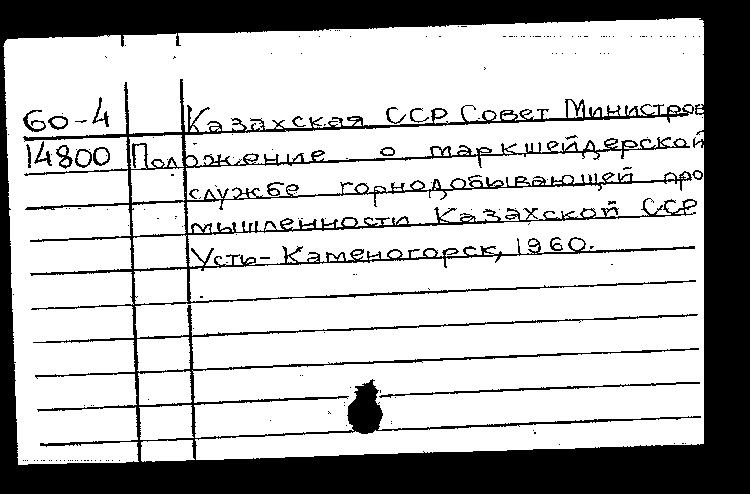 60-4 Казахская ССР Совет Министров
14800 Положение о маркшейдерской
службе горнодобывающей про
мышленности Казахской ССР
Усть-Каменогорск, 1960.